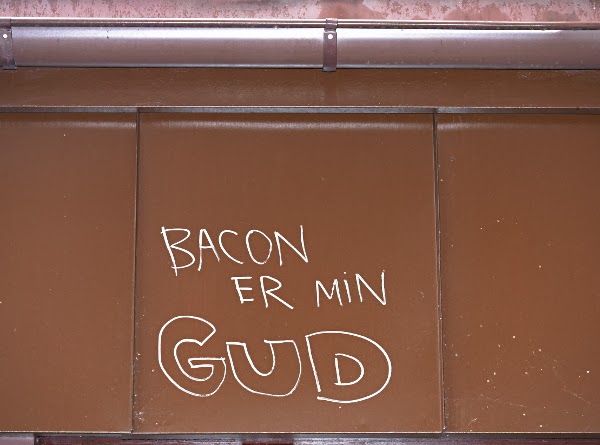 BACON
ER MIN
GUD